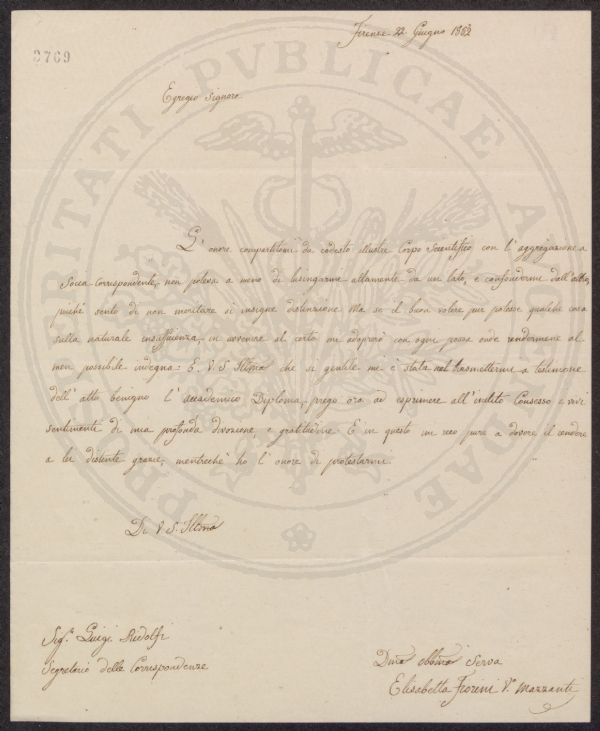 Firenze 22 Giugno 1882
3769
Egregio Signore
L'onore compartitomi da codesto illustre Corpo Scientifico con l'aggregazione a
Socia corrispondente, non poteva a meno di lusingarmi altamente da un lato, e confondermi dall'altro,
poichè sento di non meritare sì insigne distinzione. Ma se il buon volere pur potesse qualche cosa
sulla naturale insufficienza, in avvenire al certo mi adoprerò con ogni possa onde rendermene al
men possibile indegna: E. V. S. Illma che sì gentile mi è stata nel trasmettermi a testimone
dell'atto benigno l'accademico Diploma, prego ora ad esprimere all'inclito Consesso i vivi
sentimenti di mia profonda divozione, e gratitudine. E in questo mi reco pure a dovere il rendere
a lei distinte grazie, mentrechè ho l'onore di protestarmi
Di V. S. Illma
Sigr. Luigi Ridolfi
Segretario delle Corrispondenze
Dma obbma Serva
Elisabetta Fiorini Va Mazzanti
PROSPERITATI PVBLICAE AVGENDAE